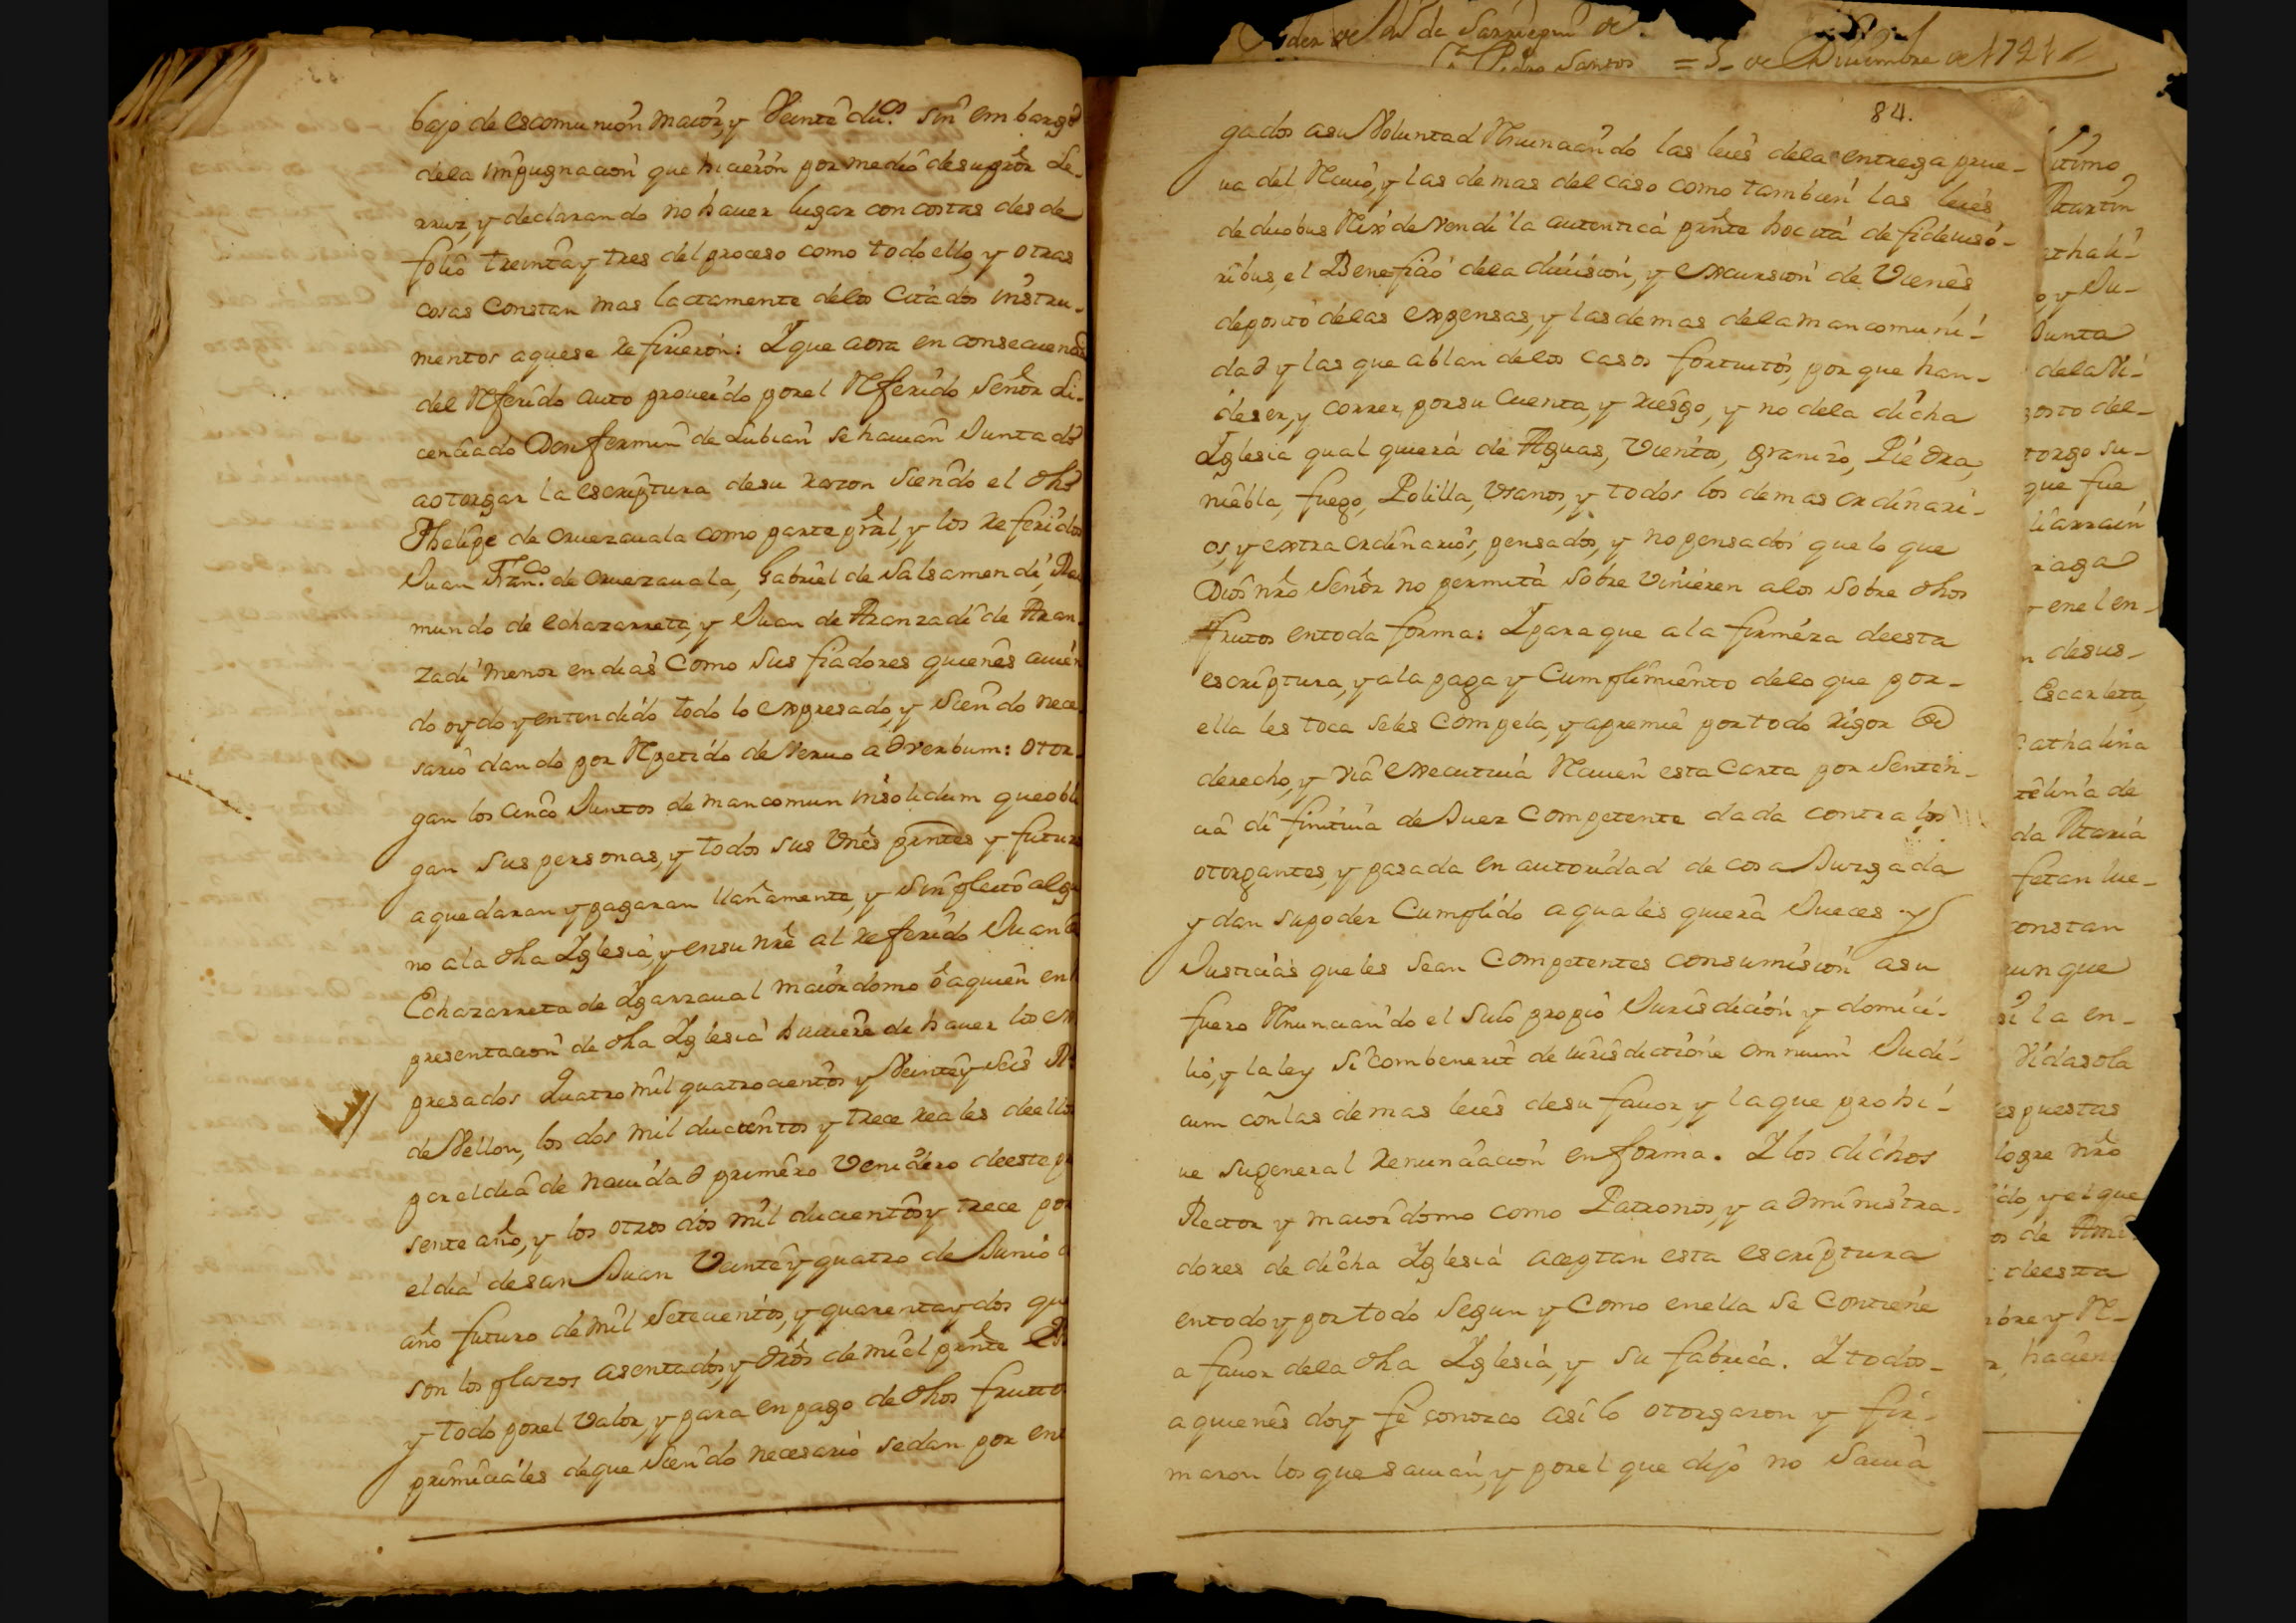 der de Dn de Sarriegui de
Pedro Santos = 5 de Diciembre de 1721
bajo de escomunion maior, y Veinte du.os Sin embargo
dela impugnacion que hicieron por medio de su pror Le-
rruz, y declarando no hauer lugar con costas desde
folio treinta y tres del proceso como todo ello, y otras
cosas constan mas lactamente delos Citados instru-
mentos aquese refirieron: Y que aora en consecuencia
del Referido auto proueido porel Referido Señor Li-
cenciado Don fermin de Lubian se hauian Juntado
aotorgar la escriptura desu razon siendo el dho
Phelipe de oruezauala como parte prāl, y los referidos
Juan Fran.co de oruezauala, Gabriel de Salsamendi, Rai
mundo de echazarreta, y Juan de Aranzadi de Aran-
zadi menor en dias como sus fiadores quienes auien
do oydo y entendido todo lo expresado, y siendo nece
sario dando por Repetido de Veruo adverbum: otor-
gan los cinco Juntos de mancomun insolidum que obli
gan sus personas, y todos sus Vnēs prntes y futuros
aquedaran y pagaran llañamente, y sin pleito algu
no ala dha Yglesia, y ensu nrē al referido Juan de
Echazarreta de Ygarzaual maiordomo ô aquien en
presentacion de dha Yglesia huuiere de hauer los ex
presados Quatro mil quatrocientos y Veinte y Seis R.
de Vellon, los dos mil ducientos y trece reales deellos
por el dia de nauidad primero Venidero deeste pre
sente año, y los otros dos mil ducientos y trece por
eldia desan Juan Veinte y quatro de Junio d
año futuro de mil Setecientos, y quarenta y dos que
son los plazos asentados, y
y todo porel Valor, y para en pago de dhos frutto
primiciales deque siendo necesario sedan por ent
84.
gados asu Voluntad Renunciando las leies dela entrega prue-
ua del Reciuo, y las demas del caso como tambien las leies
de duobus Reix devendi la autentica prnte hocita de fideiuso-
ribus, el Beneficio dela diuision, y excursion de Vienes,
deposito delas expensas, y lasdemas dela mancomuni-
dad y las que ablan delos casos fortuitos, por que han-
deser, y correr por su Cuenta, y riesgo, y no dela dicha
Yglesia qual quiera de Aguas, Viento, granizo, Piedra,
niebla, fuego, Polilla, Vsanos, y todos los demas ordinari-
os, y extraordinarios, pensados, y no pensados que lo que
Dios nrō Señor no permita sobre Vinieren alos sobre dhos
frutos entoda forma: Y para que ala firmeza deesta
escriptura, y ala paga y Cumplimiento delo que por-
ella les toca seles compela, y apremie por todo rigor de
derecho, y via executiua Reciuen esta Carta por Senten-
cia difinitiua de Juez competente dada contra los
otorgantes, y pasada en autoridad de cosa Juzgada
y dan supoder Cumplido aquales quiera Jueces y
Justicias queles sean Competentes consumision asu
fuero Renunciando el Suio propio Jurisdicion y domici-
lio, y la ley Si combenerit de iurisdictione omnium Judi-
cum con las demas leies desu fauor, y laque prohi-
ue sugeneral renunciacion en forma. Y los dichos
Rector y maiordomo como Patronos, y administra-
dores de dicha Yglesia aceptan esta escriptura
entodo y por todo Segun y como enella se Contiene
a fauor dela dha Yglesia, y su fabrica. Y todos-
aquienes doy fe conozco asi lo otorgaron y fir-
maron los que sauian, y porel que dijo no Sauia
itimo
Martin
athali-
o, y Ju-
Junta
dela Vi-
gosto del-
torgo su-
que fue
liarrain
riaga
y enel en-
n desus-
Escarleta,
Cathalina
telina de
da Maria
fetan lue-
constan
aunque
si la en-
Vidasola
respuestas
logre nrō
ido, y el que
os de Ami
deesta
nbre y R-
hacien